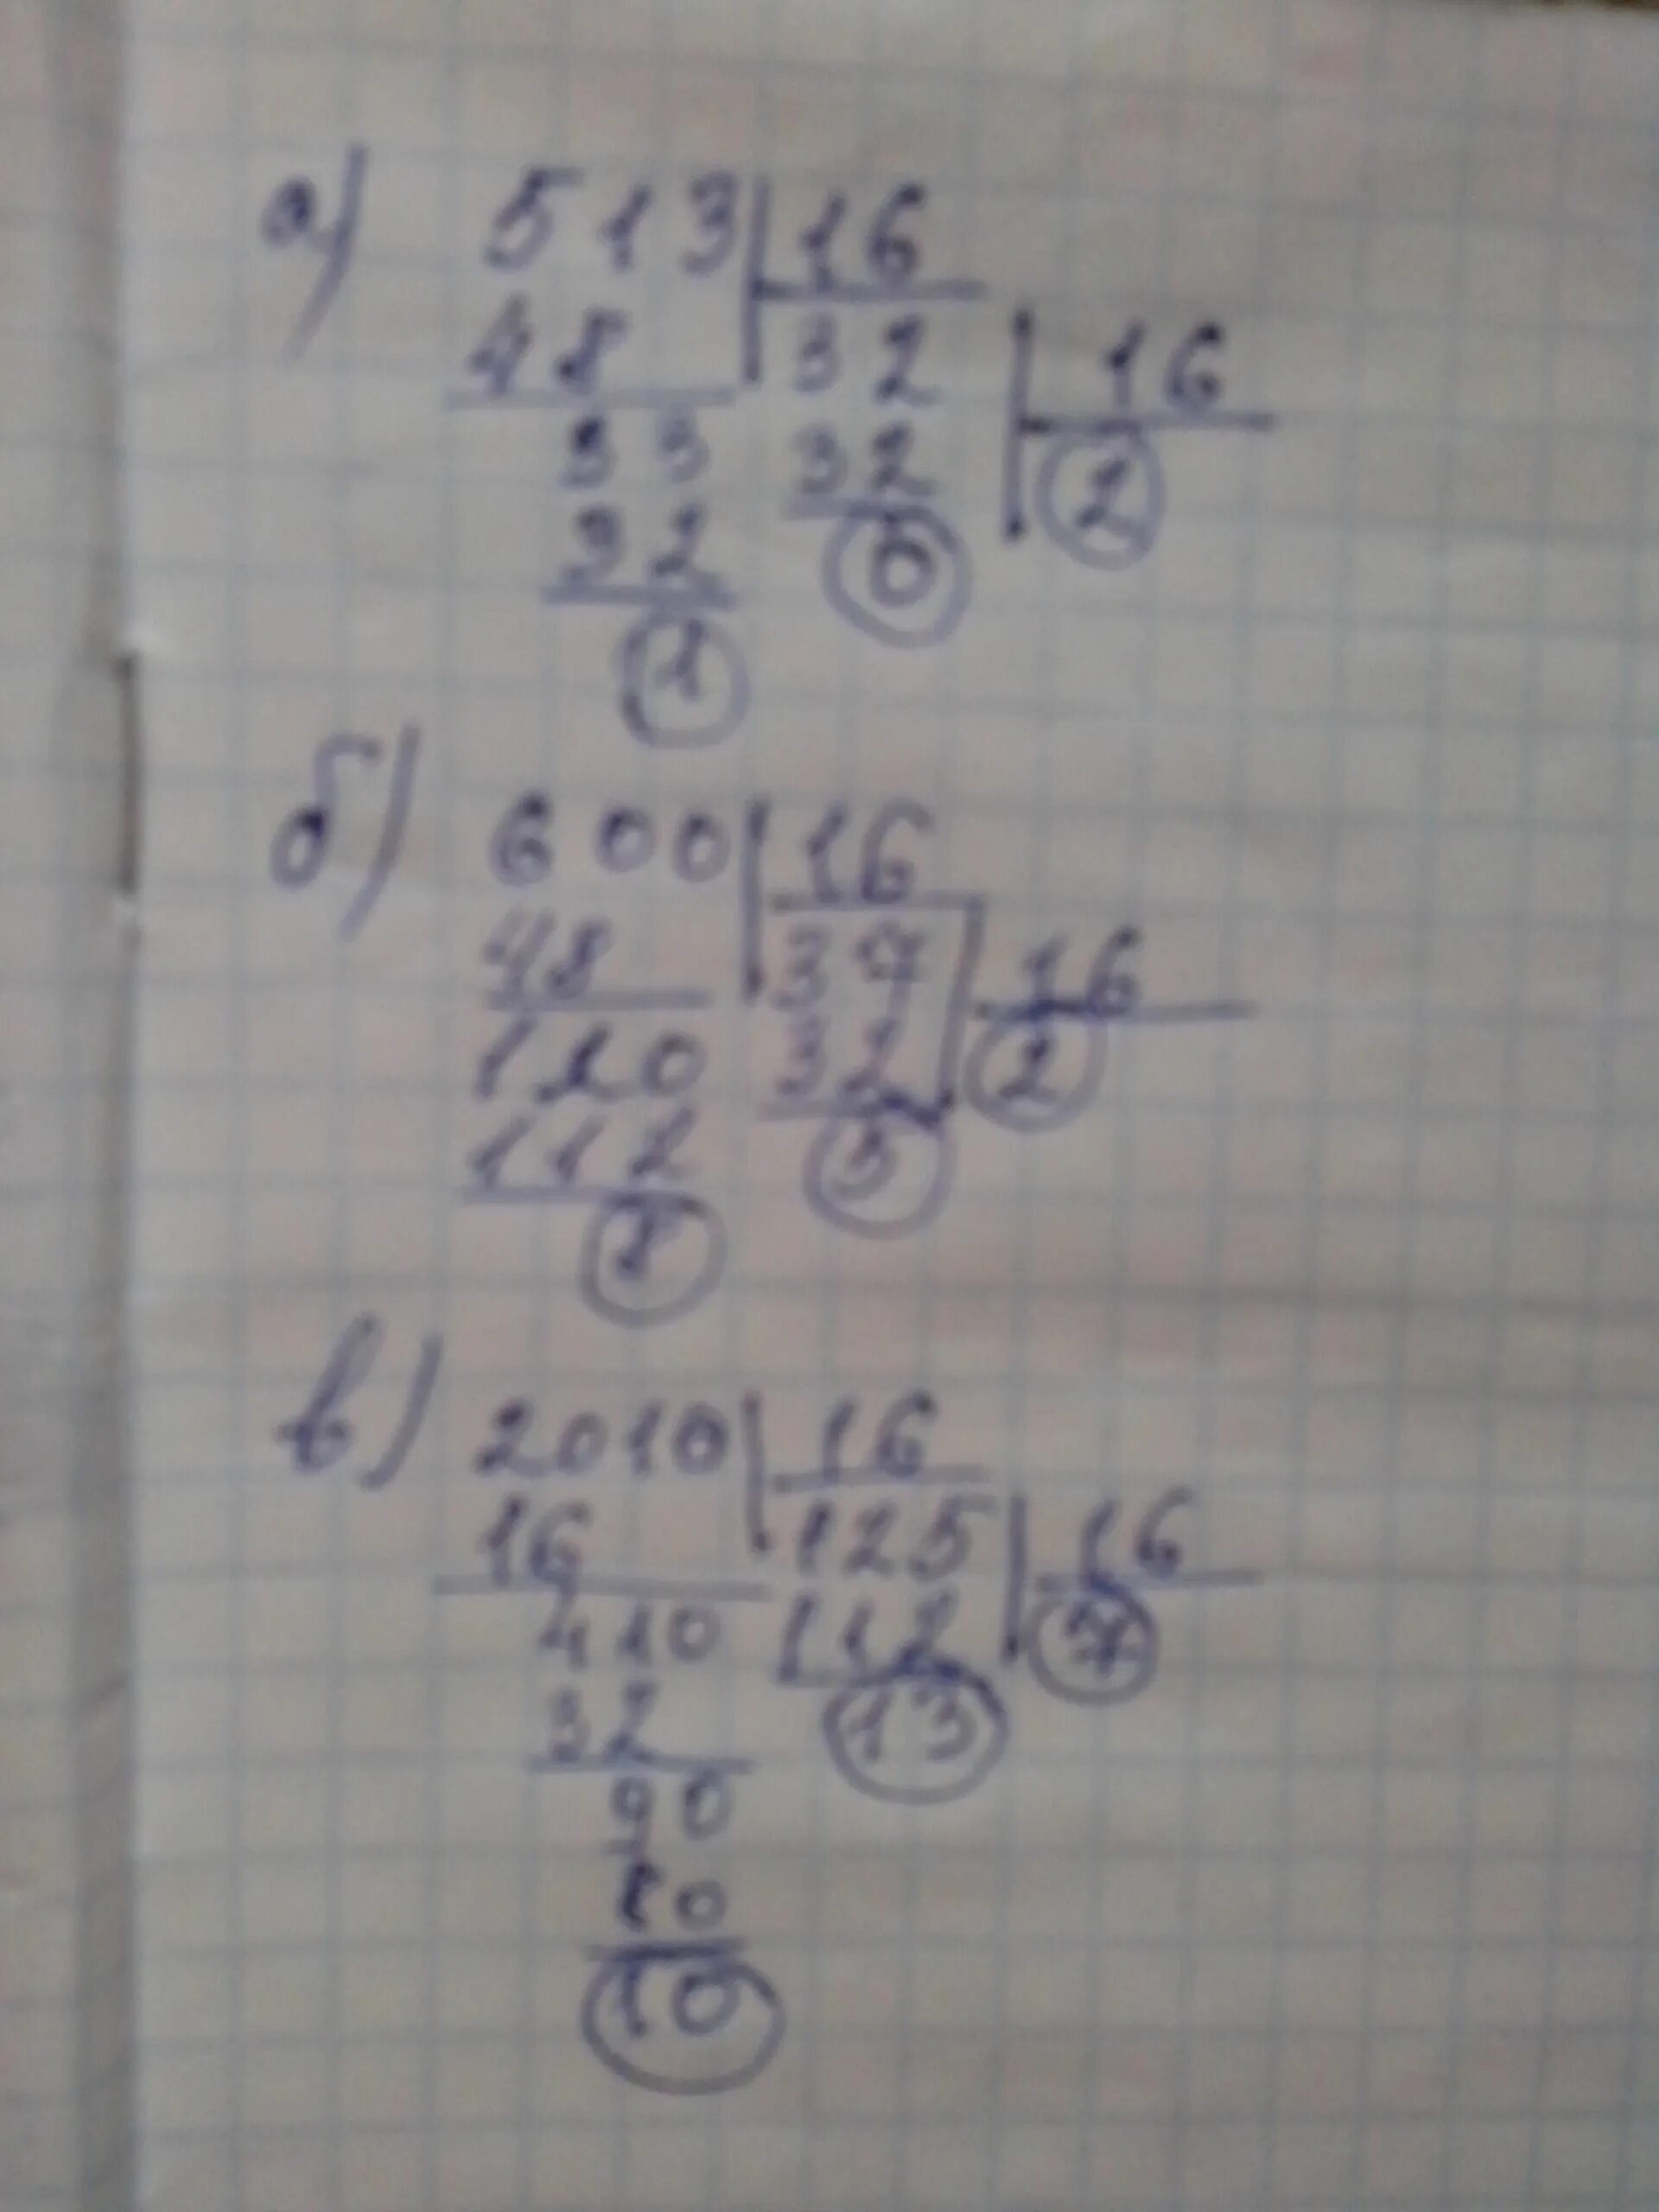 а) 513 16
48 32 16
33 32 2
32 0
1
б) 600 16
48 37 16
120 32 2
112 5
8
в) 2010 16
16 125 16
410 112 7
32 13
90
80
10